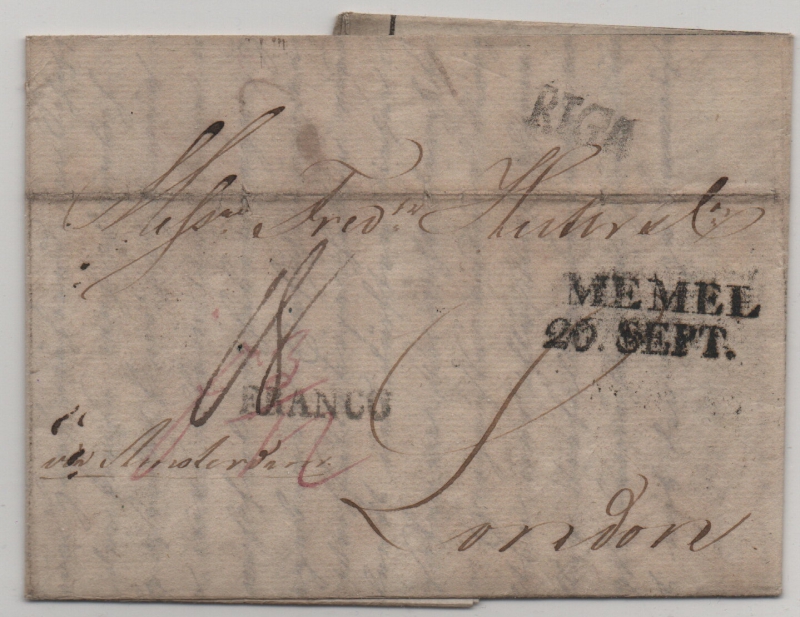 RIGA
Messrs Fredk Huth & Co
MEMEL
20. SEPT.
FRANCO
via Amsterdam
London